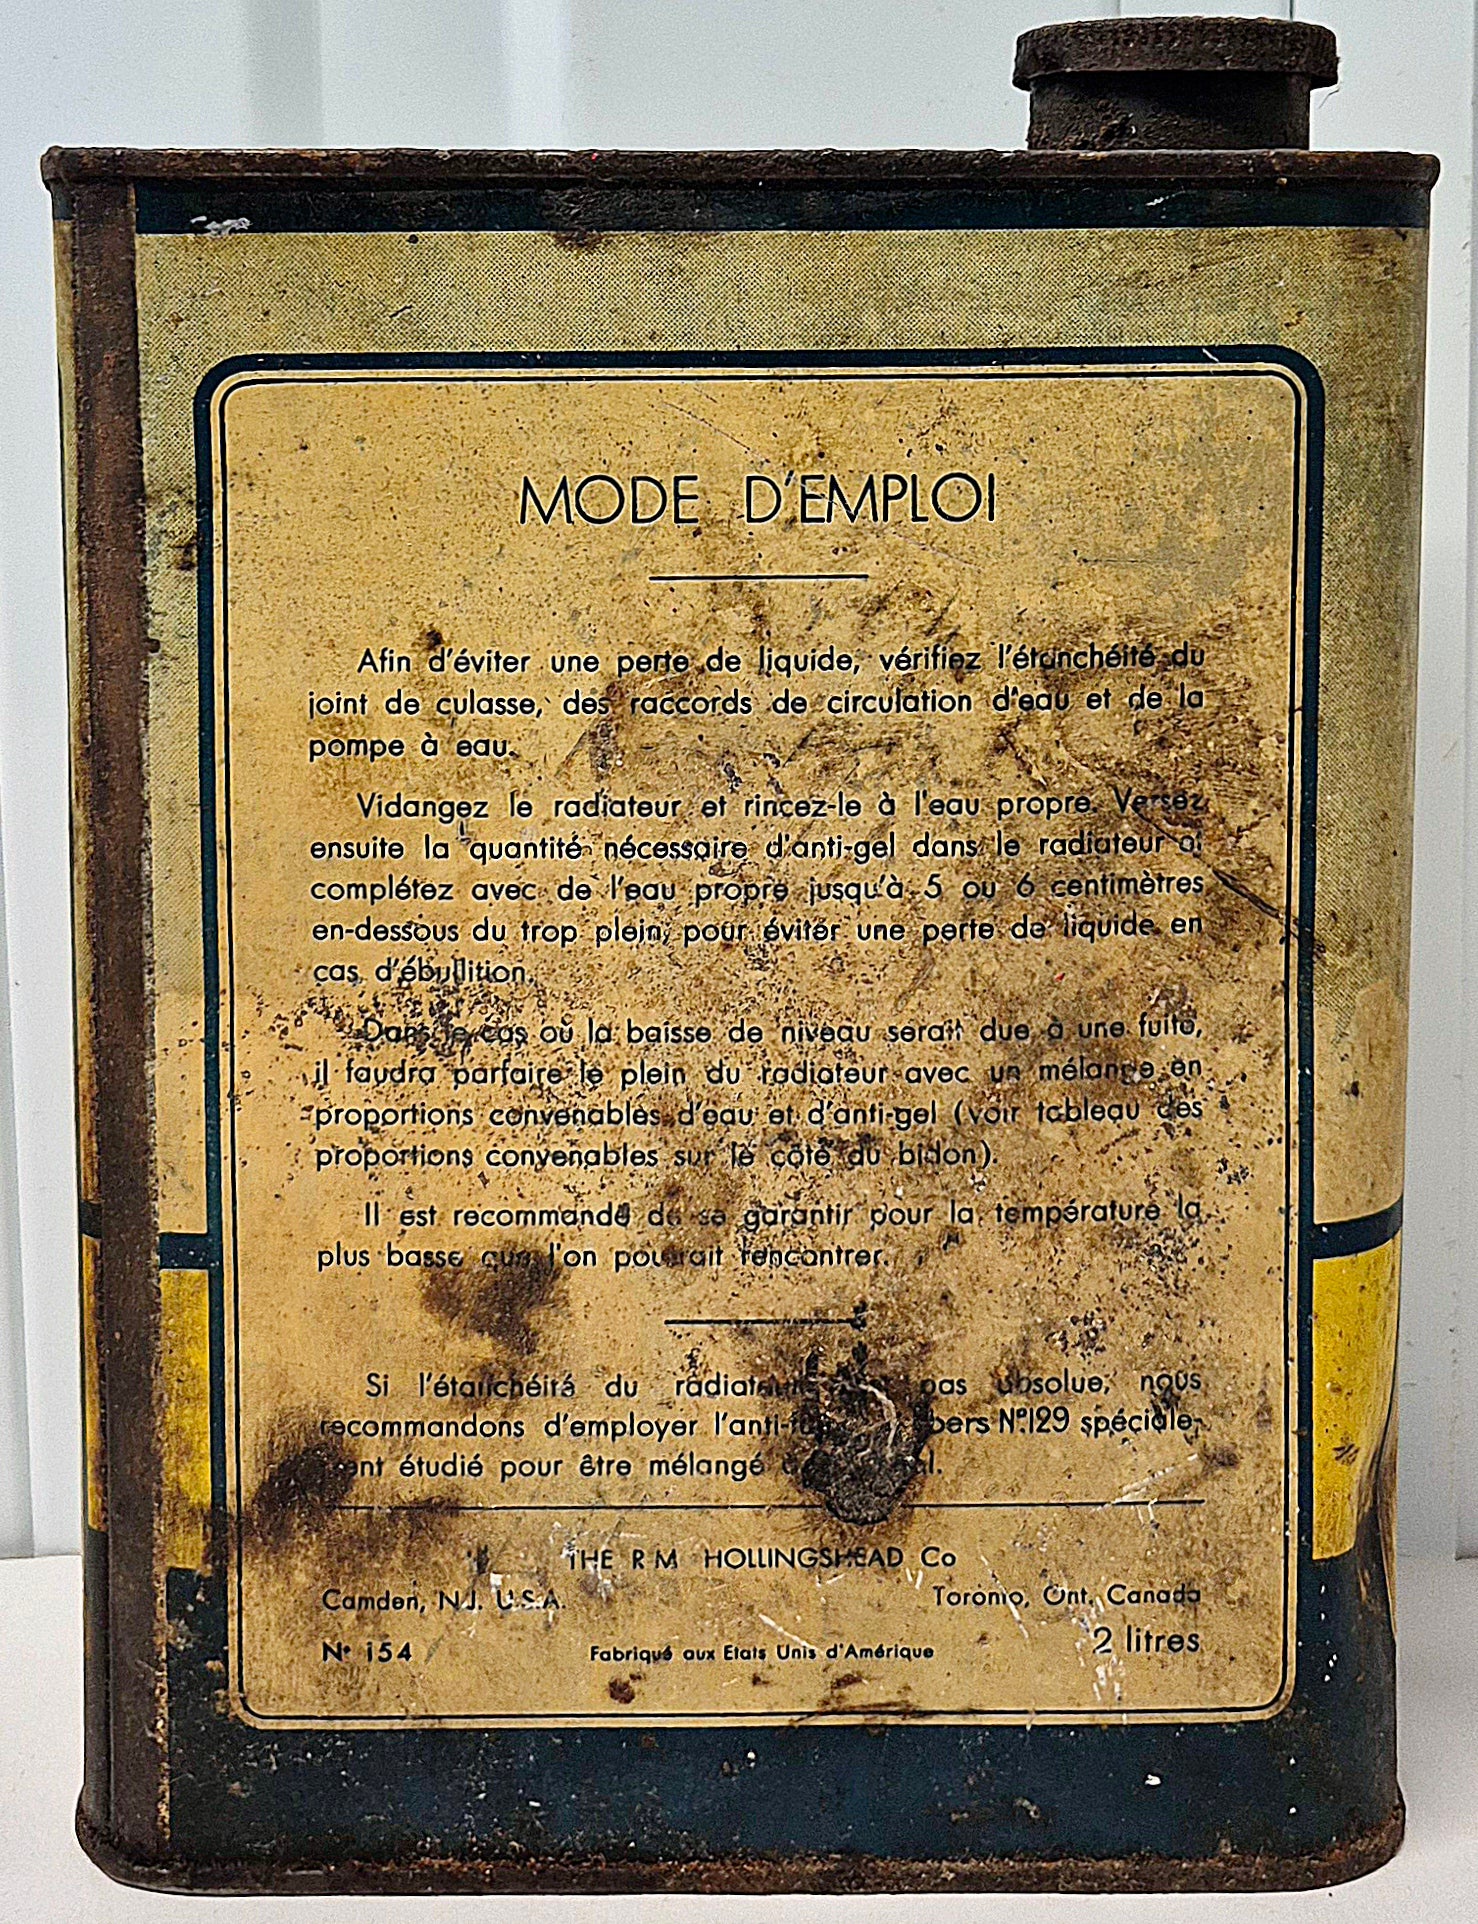 MODE D'EMPLOI
Afin d'éviter une perte de liquide, vérifiez l'étanchéité du
joint de culasse, des raccords de circulation d'eau et de la
pompe à eau.
Vidangez le radiateur et rincez-le à l'eau propre. Versez
ensuite la quantité nécessaire d'anti-gel dans le radiateur et
complétez avec de l'eau propre jusqu'à 5 ou 6 centimètres
en-dessous du trop plein, pour éviter une perte de liquide en
cas d'ébullition.
Dans le cas où la baisse de niveau serait due à une fuite,
il faudra parfaire le plein du radiateur avec un mélange en
proportions convenables d'eau et d'anti-gel (voir tableau des
proportions convenables sur le côté du bidon).
Il est recommandé de se garantir pour la température la
plus basse que l'on pourrait rencontrer.
Si l'étanchéité du pas absolue, nous
recommandons d'employer N°.129 spéciale-
étudié pour être mélangé
THE R M HOLLINGSHEAD Co
Camden, N.J. U.S.A. Toronto, Ont. Canada
N° 154 Fabriqué aux Etats Unis d'Amérique 2 litres